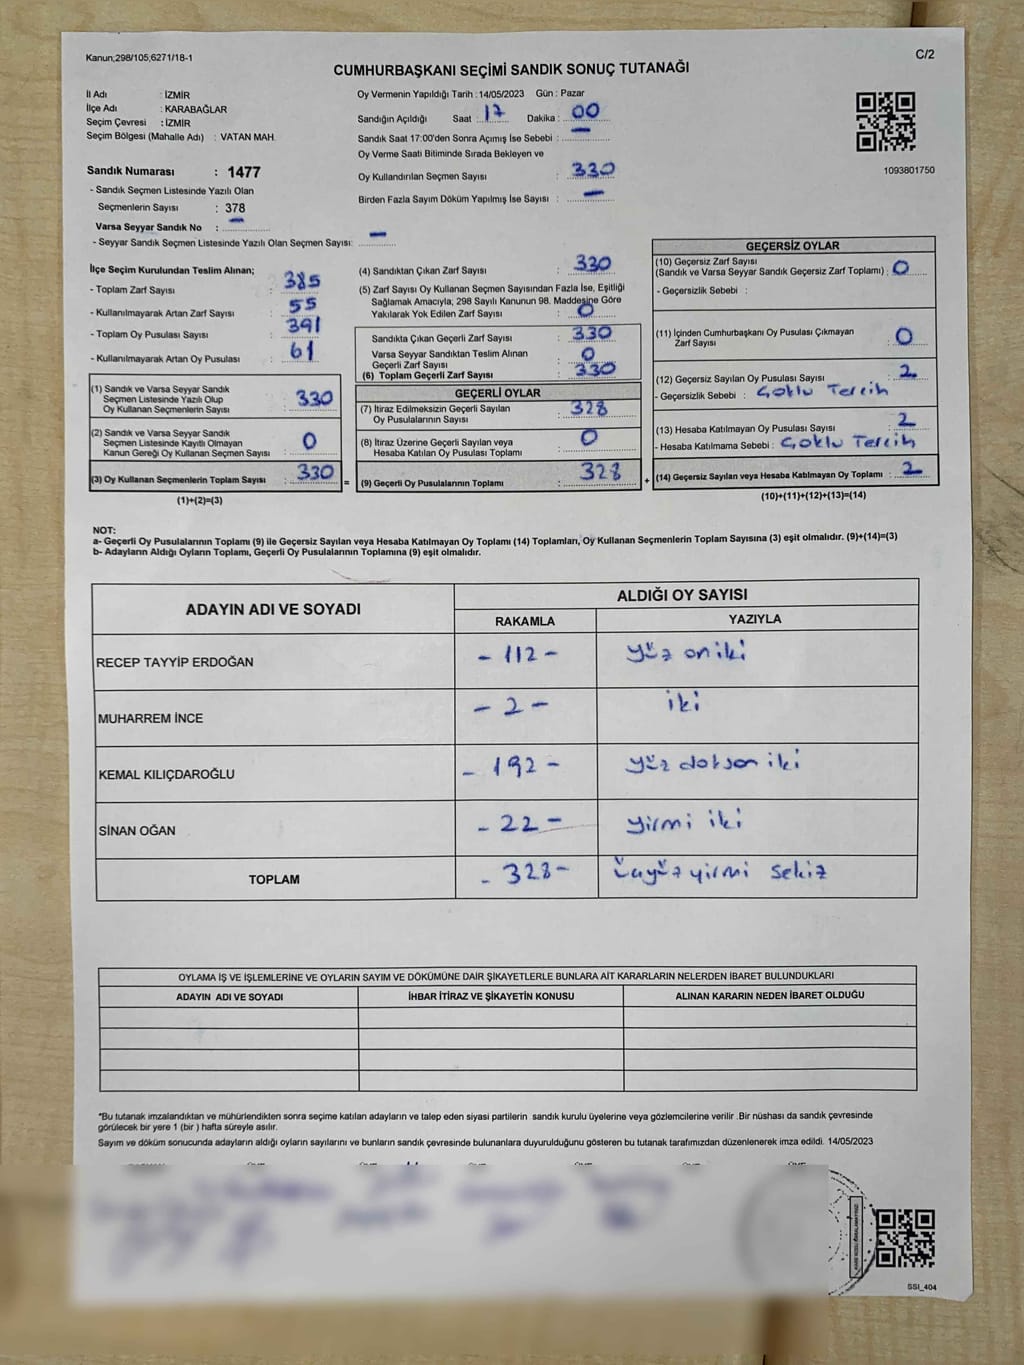 Kanun;298/105;6271/18-1
C/2
CUMHURBAŞKANI SEÇİMİ SANDIK SONUÇ TUTANAĞI
İl Adı : İZMİR
İlçe Adı : KARABAĞLAR
Seçim Çevresi : İZMİR
Seçim Bölgesi (Mahalle Adı) : VATAN MAH.
Sandık Numarası : 1477
- Sandık Seçmen Listesinde Yazılı Olan
Seçmenlerin Sayısı : 378
Varsa Seyyar Sandık No : —
- Seyyar Sandık Seçmen Listesinde Yazılı Olan Seçmen Sayısı: —
Oy Vermenin Yapıldığı Tarih : 14/05/2023 Gün : Pazar
Sandığın Açıldığı Saat : 17 Dakika : 00
Sandık Saat 17:00'den Sonra Açımış İse Sebebi : —
Oy Verme Saati Bitiminde Sırada Bekleyen ve
Oy Kullandırılan Seçmen Sayısı : 330
Birden Fazla Sayım Döküm Yapılmış İse Sayısı : —
1093801750
İlçe Seçim Kurulundan Teslim Alınan;
- Toplam Zarf Sayısı : 385
- Kullanılmayarak Artan Zarf Sayısı : 55
- Toplam Oy Pusulası Sayısı : 391
- Kullanılmayarak Artan Oy Pusulası : 61
(1) Sandık ve Varsa Seyyar Sandık
Seçmen Listesinde Yazılı Olup
Oy Kullanan Seçmenlerin Sayısı : 330
(2) Sandık ve Varsa Seyyar Sandık
Seçmen Listesinde Kayıtlı Olmayan
Kanun Gereği Oy Kullanan Seçmen Sayısı : 0
(3) Oy Kullanan Seçmenlerin Toplam Sayısı : 330 =
(1)+(2)=(3)
(4) Sandıktan Çıkan Zarf Sayısı : 330
(5) Zarf Sayısı Oy Kullanan Seçmen Sayısından Fazla İse, Eşitliği
Sağlamak Amacıyla; 298 Sayılı Kanunun 98. Maddesine Göre
Yakılarak Yok Edilen Zarf Sayısı : 0
Sandıkta Çıkan Geçerli Zarf Sayısı : 330
Varsa Seyyar Sandıktan Teslim Alınan
Geçerli Zarf Sayısı : 0
(6) Toplam Geçerli Zarf Sayısı : 330
GEÇERLİ OYLAR
(7) İtiraz Edilmeksizin Geçerli Sayılan
Oy Pusulalarının Sayısı : 328
(8) İtiraz Üzerine Geçerli Sayılan veya
Hesaba Katılan Oy Pusulası Toplamı : 0
(9) Geçerli Oy Pusulalarının Toplamı : 328 +
GEÇERSİZ OYLAR
(10) Geçersiz Zarf Sayısı
(Sandık ve Varsa Seyyar Sandık Geçersiz Zarf Toplamı) : 0
- Geçersizlik Sebebi :
(11) İçinden Cumhurbaşkanı Oy Pusulası Çıkmayan
Zarf Sayısı : 0
(12) Geçersiz Sayılan Oy Pusulası Sayısı : 2
- Geçersizlik Sebebi : Çoklu Tercih
(13) Hesaba Katılmayan Oy Pusulası Sayısı : 2
- Hesaba Katılmama Sebebi : Çoklu Tercih
(14) Geçersiz Sayılan veya Hesaba Katılmayan Oy Toplamı : 2
(10)+(11)+(12)+(13)=(14)
NOT:
a- Geçerli Oy Pusulalarının Toplamı (9) ile Geçersiz Sayılan veya Hesaba Katılmayan Oy Toplamı (14) Toplamları, Oy Kullanan Seçmenlerin Toplam Sayısına (3) eşit olmalıdır. (9)+(14)=(3)
b- Adayların Aldığı Oyların Toplamı, Geçerli Oy Pusulalarının Toplamına (9) eşit olmalıdır.
ADAYIN ADI VE SOYADI
ALDIĞI OY SAYISI
RAKAMLA YAZIYLA
RECEP TAYYİP ERDOĞAN - 112 - yüz oniki
MUHARREM İNCE - 2 - iki
KEMAL KILIÇDAROĞLU - 192 - yüz doksan iki
SİNAN OĞAN - 22 - yirmi iki
TOPLAM - 328 - üçyüz yirmi sekiz
OYLAMA İŞ VE İŞLEMLERİNE VE OYLARIN SAYIM VE DÖKÜMÜNE DAİR ŞİKAYETLERLE BUNLARA AİT KARARLARIN NELERDEN İBARET BULUNDUKLARI
ADAYIN ADI VE SOYADI İHBAR İTİRAZ VE ŞİKAYETİN KONUSU ALINAN KARARIN NEDEN İBARET OLDUĞU
*Bu tutanak imzalandıktan ve mühürlendikten sonra seçime katılan adayların ve talep eden siyasi partilerin sandık kurulu üyelerine veya gözlemcilerine verilir .Bir nüshası da sandık çevresinde
görülecek bir yere 1 (bir ) hafta süreyle asılır.
Sayım ve döküm sonucunda adayların aldığı oyların sayılarını ve bunların sandık çevresinde bulunanlara duyurulduğunu gösteren bu tutanak tarafımızdan düzenlenerek imza edildi. 14/05/2023
SSI_404